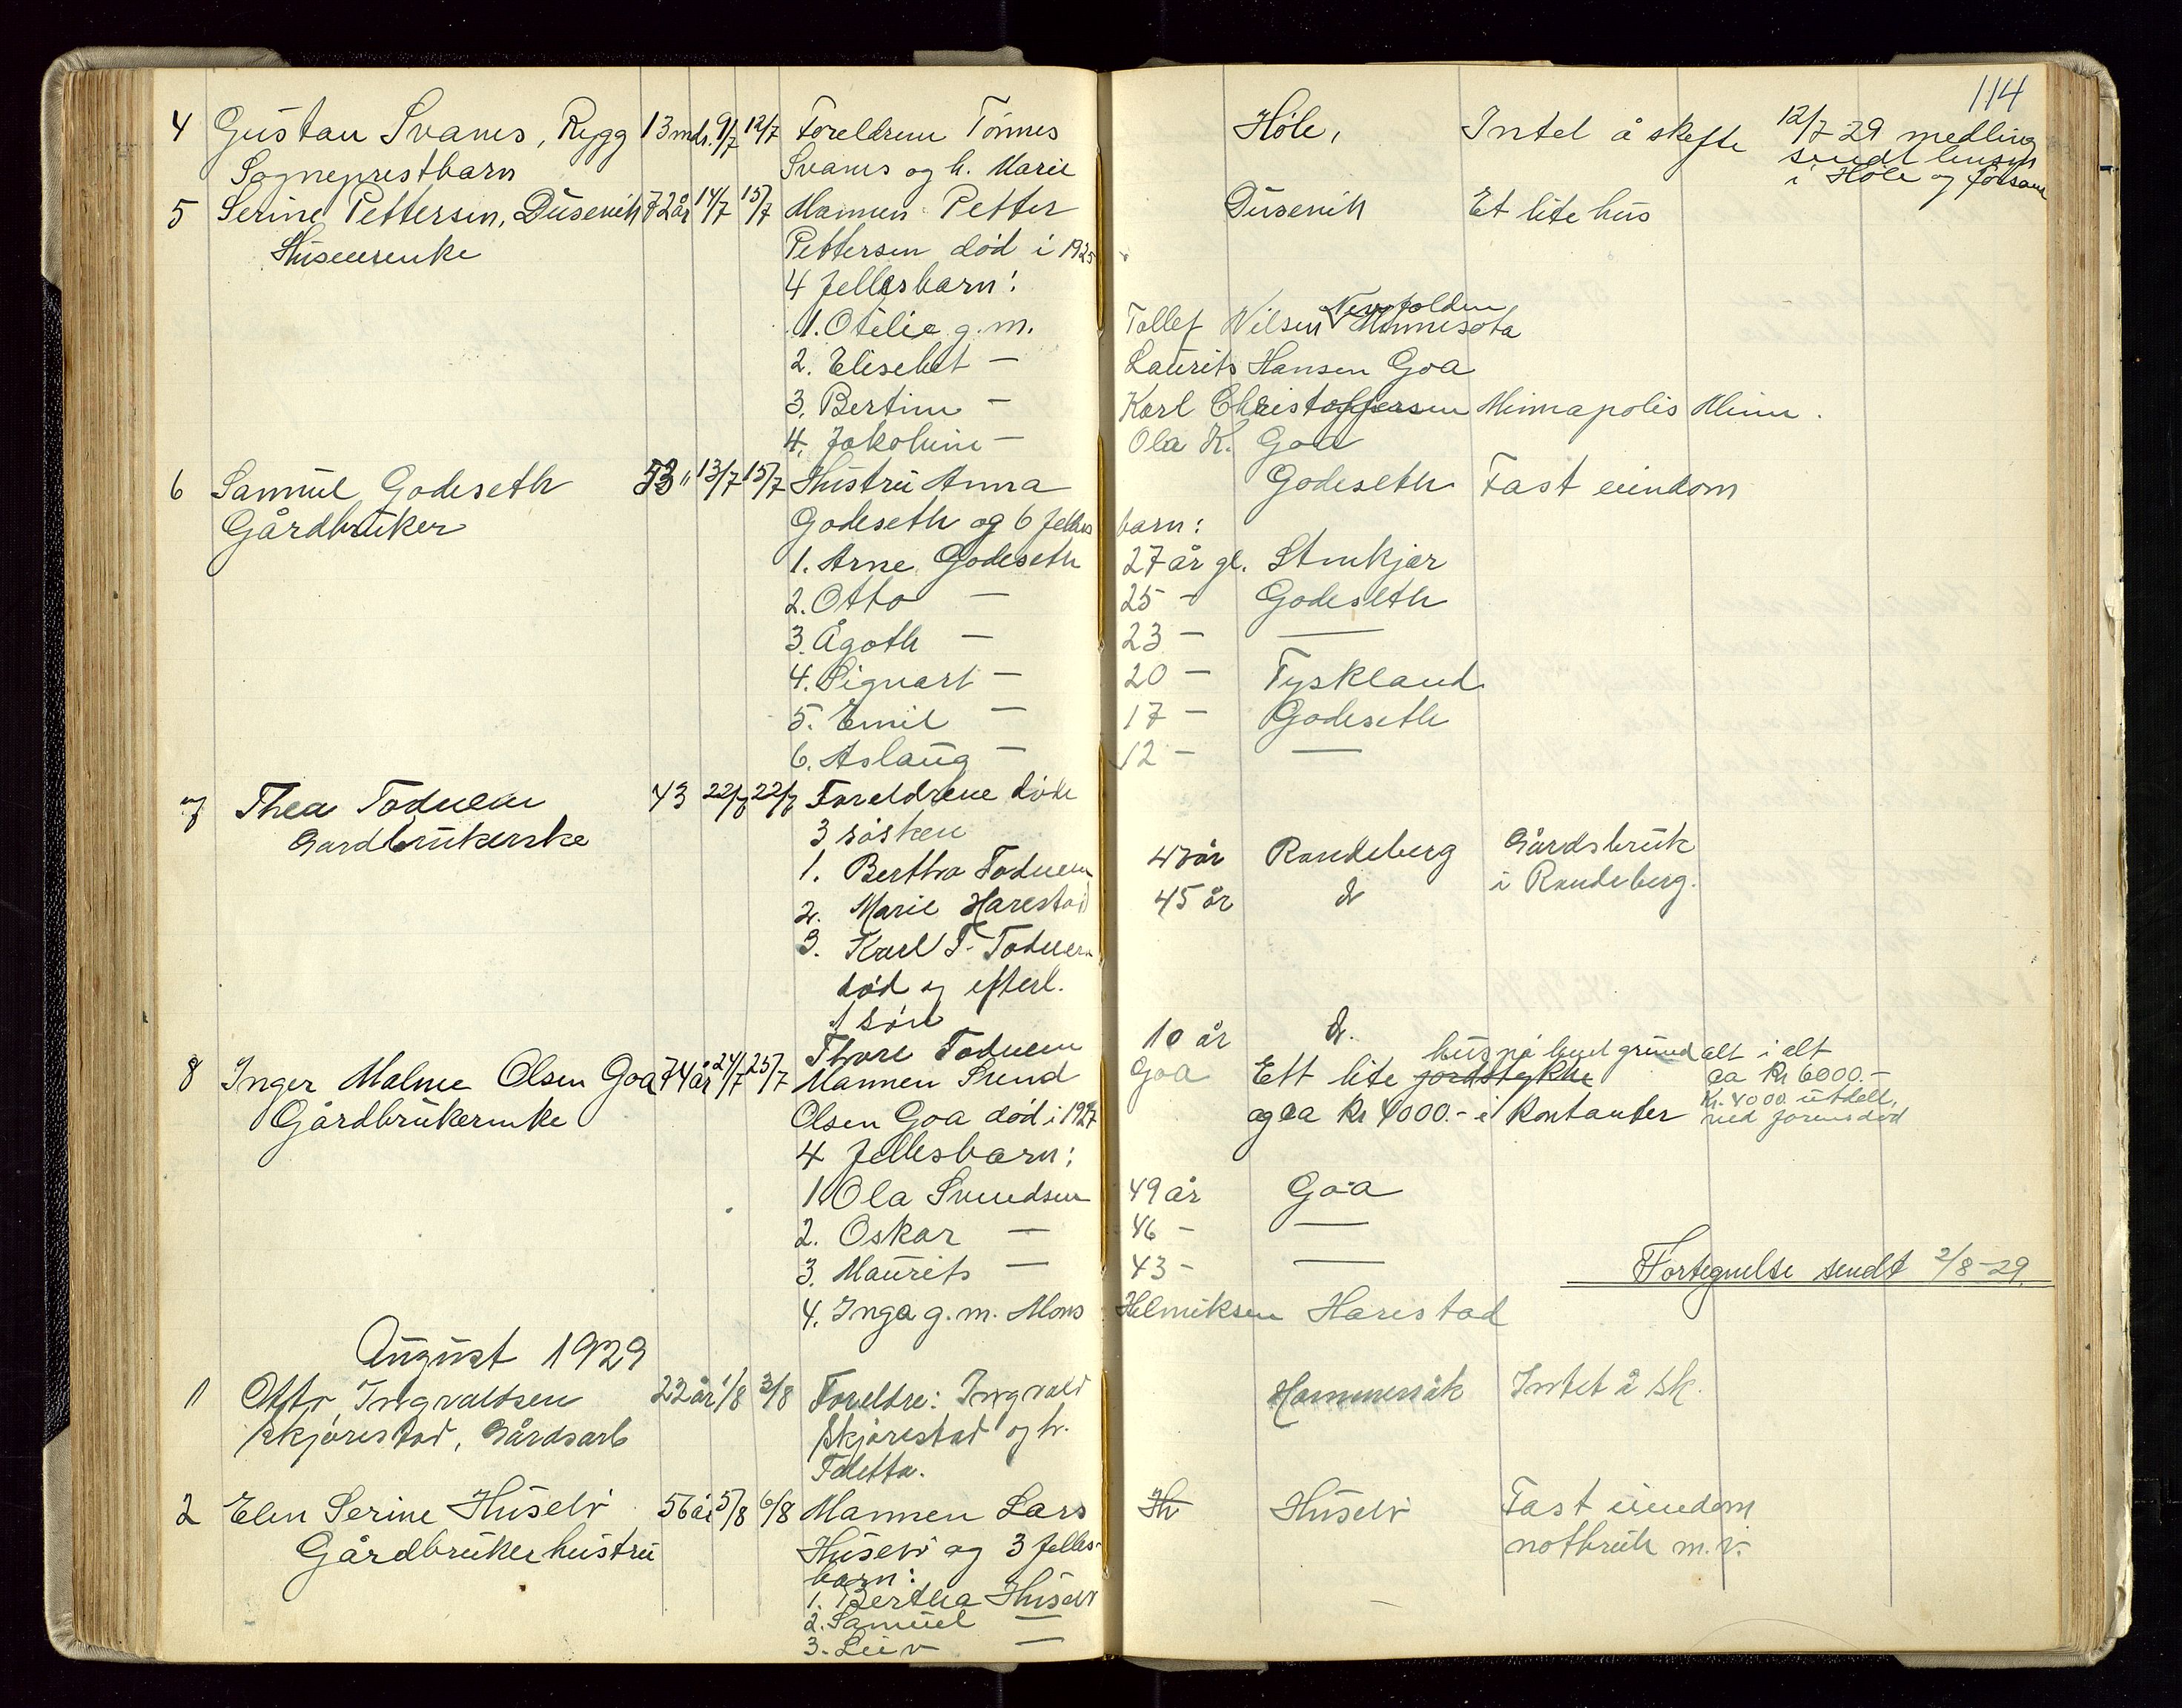 114
4 Gustav Svanes, Rygg 13 mdr. 9/7 12/7 Foreldrene Tönnes Høle, Intet å skifte 12/7 29 medling
Sogneprestbarn Svanes og h. Marie sendt lensm
i Höle og Forsand
5 Serine Pettersen, Dusevik 72 år 14/7 15/7 Mannen Petter Dusevik Et lite hus
Husmenke Pettersen död i 1925
4 fellesbarn:
Newfolden
1. Otilie g.m. Tollef Nilsen Minnesota
2. Elisebet — Laurits Hansen Goa
3. Bertine — Karl Christoffersen Minnapolis Minn.
4. Jakobine — Ola K. Goa
6 Samuel Godeseth 53 " 13/7 15/7 Hustru Anna Godeseth Fast eiendom
Gårdbruker Godeseth og 6 felles barn:
1. Arne Godeseth 27 år gl. Stenkjær
2. Otto — 25 — Godeseth
3. Ågoth — 23 — —
4. Sigvart — 20 — Tyskland
5. Emil — 17 — Godeseth
6. Aslaug — 12 — —
7 Thea Todnem 43 22/7 22/7 Foreldrene döde
Gardbrukerske 3 søsken
1. Bertha Todnem 47 år Randeberg Gårdsbruk
2. Marie Harestad 45 år d i Randeberg.
3. Karl T. Todnem
död og efterl.
1 sön
Thore Todnem 10 år d.
8 Inger Malene Olsen Goa 74 år 24/7 25/7 Mannen Svend Goa Ett lite jordstykke hus på leiet grund alt i alt
ca Kr 6000.—
Gårdbrukerenke Olsen Goa död i 1927 og ca Kr 4000.- i kontanter Kr. 4000 utdelt,
ved farens död
4 fellesbarn:
1. Ola Svendsen 49 år Goa
2. Oskar — 46 — —
3. Maurits — 43 — —
Fortegnelse sendt 2/8-29.
4. Inga g.m. Mons Helmiksen Harestad
August 1929
1 Otto Ingvaldsen 22 år 1/8 3/8 Foreldre: Ingvald Hommersåk Intet å sk.
Skjørestad, Gårdsarb Skjørestad og h.
Taletta.
2 Elen Serine Husebö 56 år 5/8 6/8 Mannen Lars Husebö Fast eiendom
Gårdbrukerhustru Husebö og 3 felles- notbruk m.v.
barn:
1. Bertha Husebö
2. Samuel —
3. Leiv —